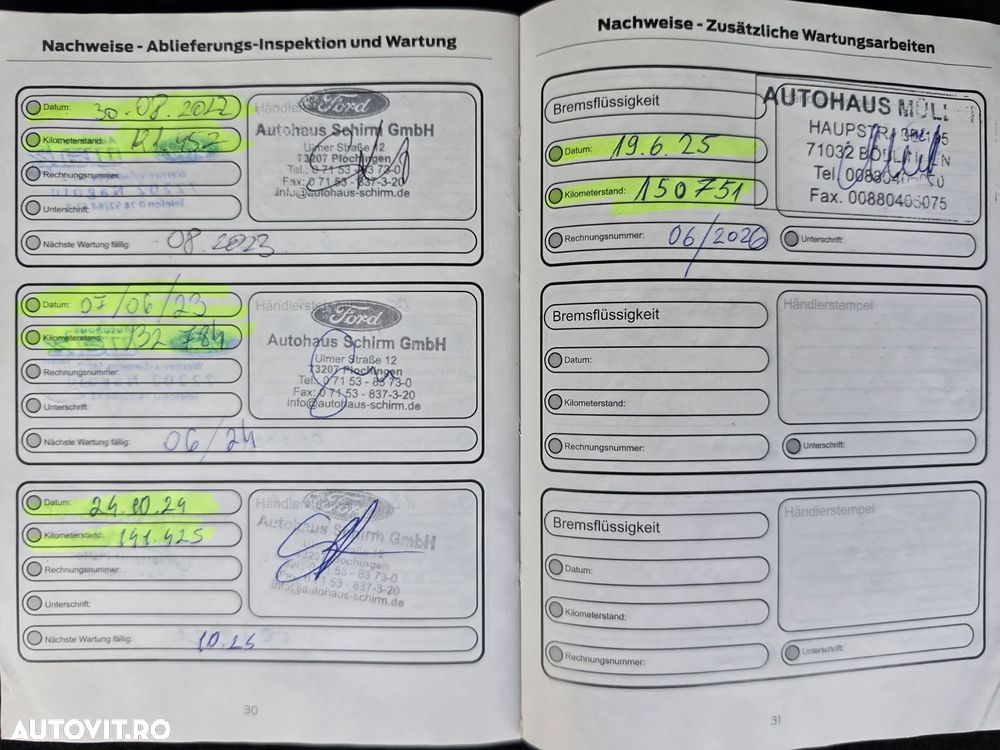 Nachweise - Ablieferungs-Inspektion und Wartung
Datum: 30.08.2022
Kilometerstand: 121.452
Rechnungsnummer:
Unterschrift:
Nächste Wartung fällig: 08.2023
Ford
Autohaus Schirm GmbH
Ulmer Straße 12
73207 Plochingen
Tel.: 0 71 53 -
Fax: 0 71 53 - 837-3-20
info@autohaus-schirm.de
Datum: 07/06/23
Kilometerstand: 132 784
Rechnungsnummer:
Unterschrift:
Nächste Wartung fällig: 06/24
Händlerstempel
Ford
Autohaus Schirm GmbH
Ulmer Straße 12
73207 Plochingen
Tel.: 0 71 53 - 83 73-0
Fax: 0 71 53 - 837-3-20
info@autohaus-schirm.de
Datum: 24.10.24
Kilometerstand: 141.425
Rechnungsnummer:
Unterschrift:
Nächste Wartung fällig: 10.25
Händlerstempel
Ford
Autohaus Schirm GmbH
Ulmer Straße 12
73207 Plochingen
Tel.: 0 71 53 - 83 73-0
Fax: 0 71 53 - 837-3-20
info@autohaus-schirm.de
30
Nachweise - Zusätzliche Wartungsarbeiten
Bremsflüssigkeit
Datum: 19.6.25
Kilometerstand: 150751
Rechnungsnummer: 06/2026
Unterschrift:
AUTOHAUS
71032
Fax. 00880405075
Bremsflüssigkeit
Datum:
Kilometerstand:
Rechnungsnummer:
Händlerstempel
Unterschrift:
Bremsflüssigkeit
Datum:
Kilometerstand:
Rechnungsnummer:
Händlerstempel
Unterschrift:
31
AUTOVIT.RO